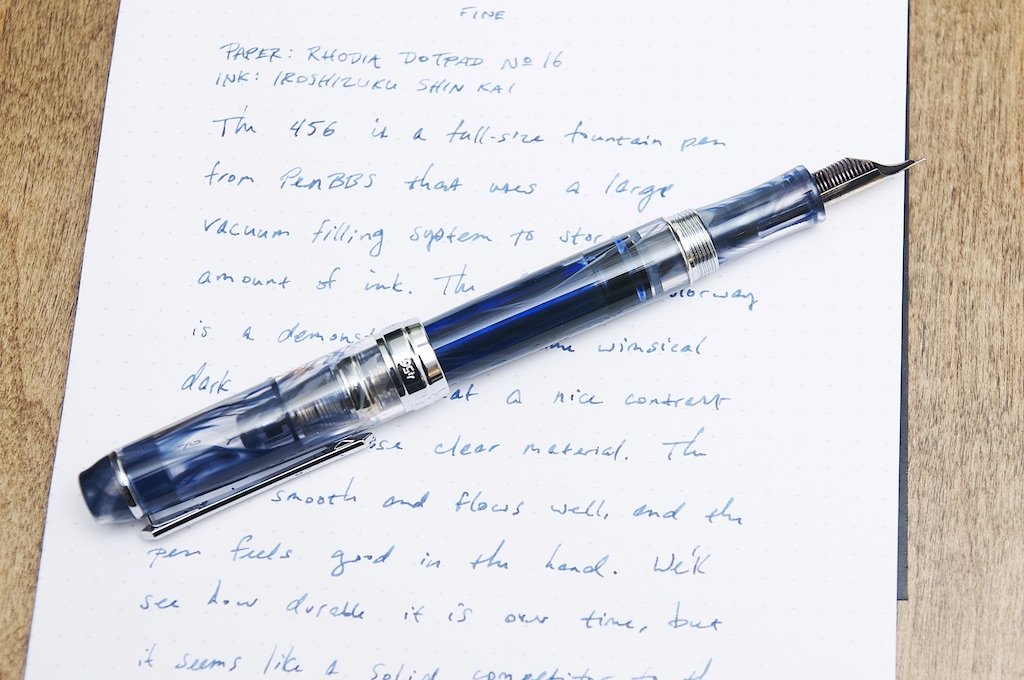 FINE
PAPER: RHODIA DOTPAD Nº 16
INK: IROSHIZUKU SHIN KAI
The 456 is a full-size fountain pen
from PenBBS that uses a large
vacuum filling system to stor
amount of ink. The
is a demons wimsical
dark at a nice contrast
clear material. The
smooth and flows well, and the
pen feels good in the hand. We'll
see how durable it is over time, but
it seems like a solid competitor to th
456